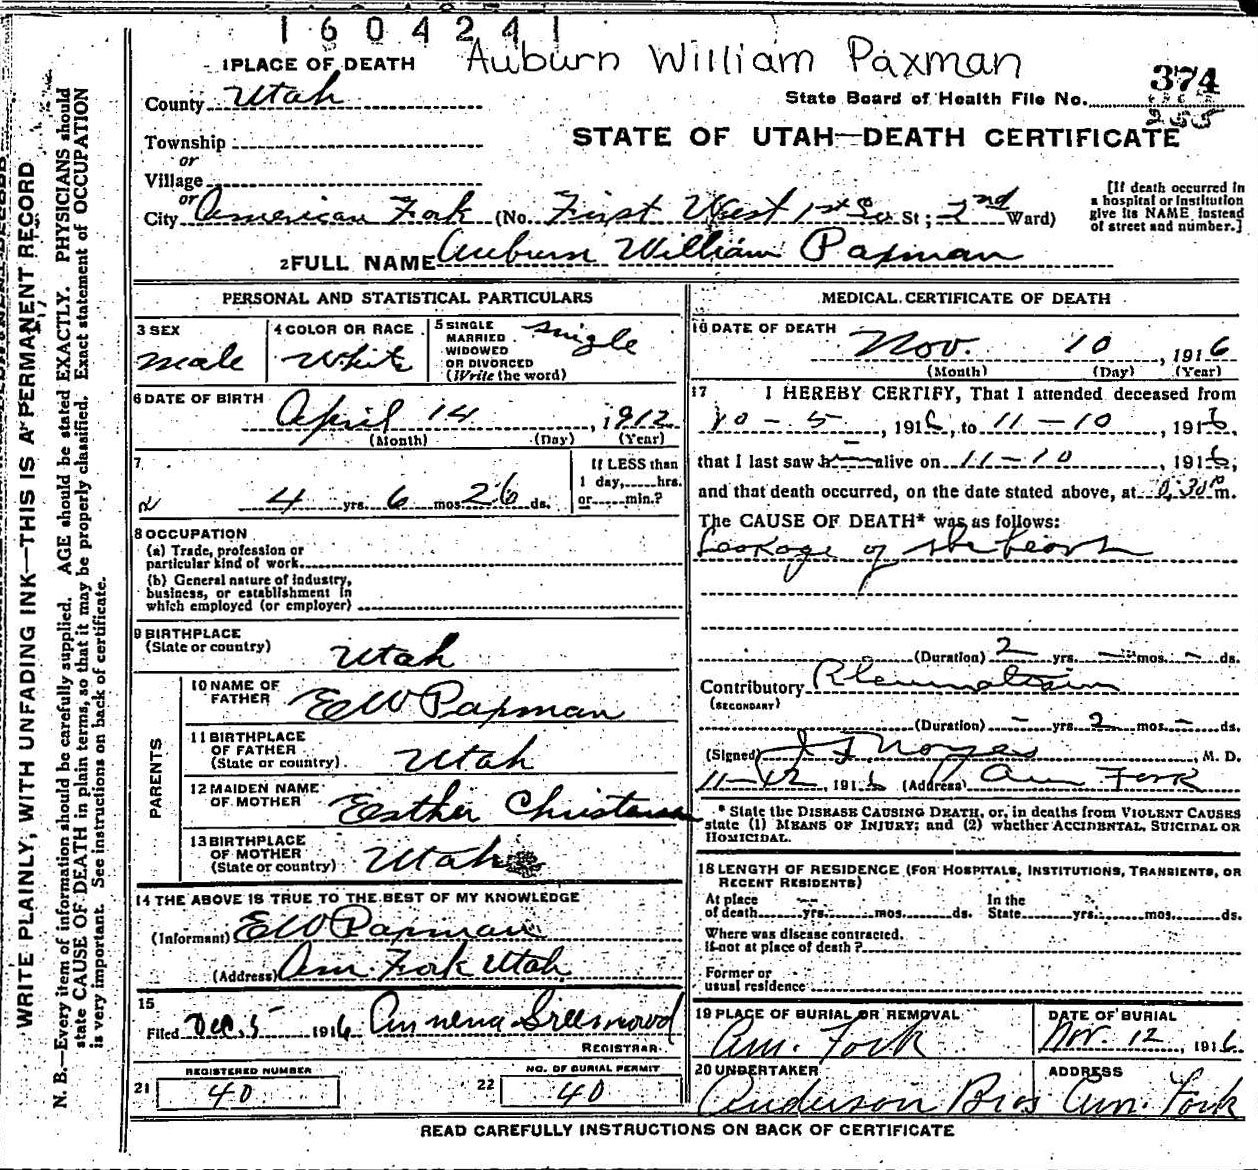 1604241
1 PLACE OF DEATH Auburn William Paxman
374
County Utah
State Board of Health File No.
Township
STATE OF UTAH—DEATH CERTIFICATE
or
Village
or
City American Fork (No. First West 1st So St; 2nd Ward)
[If death occurred in
a hospital or institution
give its NAME instead
of street and number.]
2 FULL NAME Auburn William Paxman
PERSONAL AND STATISTICAL PARTICULARS
3 SEX
male
4 COLOR OR RACE
White
5 SINGLE
MARRIED
WIDOWED
OR DIVORCED
(Write the word)
single
6 DATE OF BIRTH
April 14, 1912
(Month) (Day) (Year)
7
4 yrs. 6 mos. 26 ds.
If LESS than
1 day, hrs.
or min.?
8 OCCUPATION
(a) Trade, profession or
particular kind of work
(b) General nature of industry,
business, or establishment in
which employed (or employer)
9 BIRTHPLACE
(State or country)
Utah
PARENTS
10 NAME OF
FATHER
EW Paxman
11 BIRTHPLACE
OF FATHER
(State or country)
Utah
12 MAIDEN NAME
OF MOTHER
Esther Christensen
13 BIRTHPLACE
OF MOTHER
(State or country)
Utah
14 THE ABOVE IS TRUE TO THE BEST OF MY KNOWLEDGE
(Informant) EW Paxman
(Address) Am. Fork Utah
15
Filed Dec. 5 1916 Greenwood
REGISTRAR
21 REGISTERED NUMBER
40
22 NO. OF BURIAL PERMIT
40
MEDICAL CERTIFICATE OF DEATH
16 DATE OF DEATH
Nov. 10, 1916
(Month) (Day) (Year)
17 I HEREBY CERTIFY, That I attended deceased from
10-5, 1916, to 11-10, 1916,
that I last saw h alive on 11-10, 1916,
and that death occurred, on the date stated above, at m.
The CAUSE OF DEATH* was as follows:
Leakage of the heart
(Duration) 2 yrs. — mos. — ds.
Contributory Rheumatism
(SECONDARY)
(Duration) — yrs. 2 mos. — ds.
(Signed) Noyes, M. D.
11-12, 1916 (Address) Am Fork
* State the DISEASE CAUSING DEATH, or, in deaths from VIOLENT CAUSES
state (1) MEANS OF INJURY; and (2) whether ACCIDENTAL, SUICIDAL OR
HOMICIDAL.
18 LENGTH OF RESIDENCE (FOR HOSPITALS, INSTITUTIONS, TRANSIENTS, OR
RECENT RESIDENTS)
At place
of death yrs. mos. ds.
In the
State yrs. mos. ds.
Where was disease contracted,
if not at place of death?
Former or
usual residence
19 PLACE OF BURIAL OR REMOVAL
Am. Fork
DATE OF BURIAL
Nov. 12, 1916
20 UNDERTAKER
Anderson Bros
ADDRESS
Am. Fork
READ CAREFULLY INSTRUCTIONS ON BACK OF CERTIFICATE
WRITE PLAINLY, WITH UNFADING INK—THIS IS A PERMANENT RECORD
N. B.—Every item of information should be carefully supplied. AGE should be stated EXACTLY. PHYSICIANS should
state CAUSE OF DEATH in plain terms, so that it may be properly classified. Exact statement of OCCUPATION
is very important. See instructions on back of certificate.